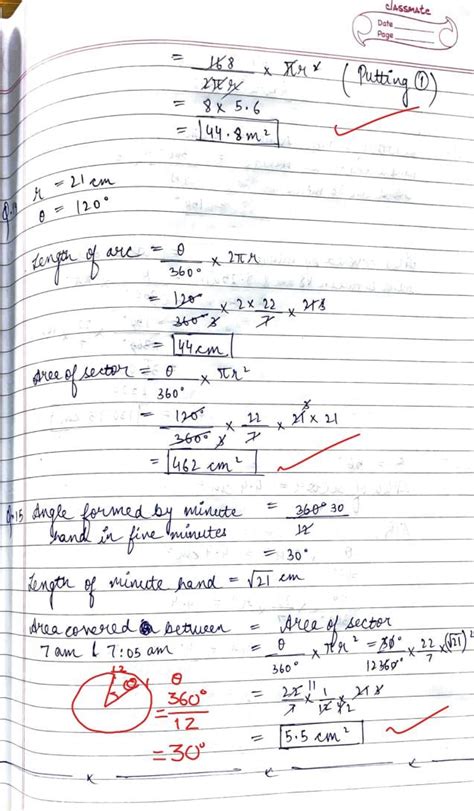 classmate
Date
Page
= 168 / 2πr × πr² (Putting ①)
= 8 × 5.6
= 44.8 m²
r = 21 cm
θ = 120°
Length of arc = θ / 360° × 2πr
= 120° / 360° 3 × 2 × 22 / 7 × 21 3
= 44 cm
Area of sector = θ / 360° × πr²
= 120° / 360° 3 × 22 / 7 × 21 3 × 21
= 462 cm²
Q.15 Angle formed by minute hand in five minutes = 360° 30 / 12
= 30°
Length of minute hand = √21 cm
Area covered between 7 am & 7:05 am = Area of sector
= θ / 360° × πr² = 30° / 12 360° × 22 / 7 × (√21)²
12
θ
= 360° / 12
= 30°
= 22 11 / 7 × 1 / 12 × 21 3
= 5.5 cm²